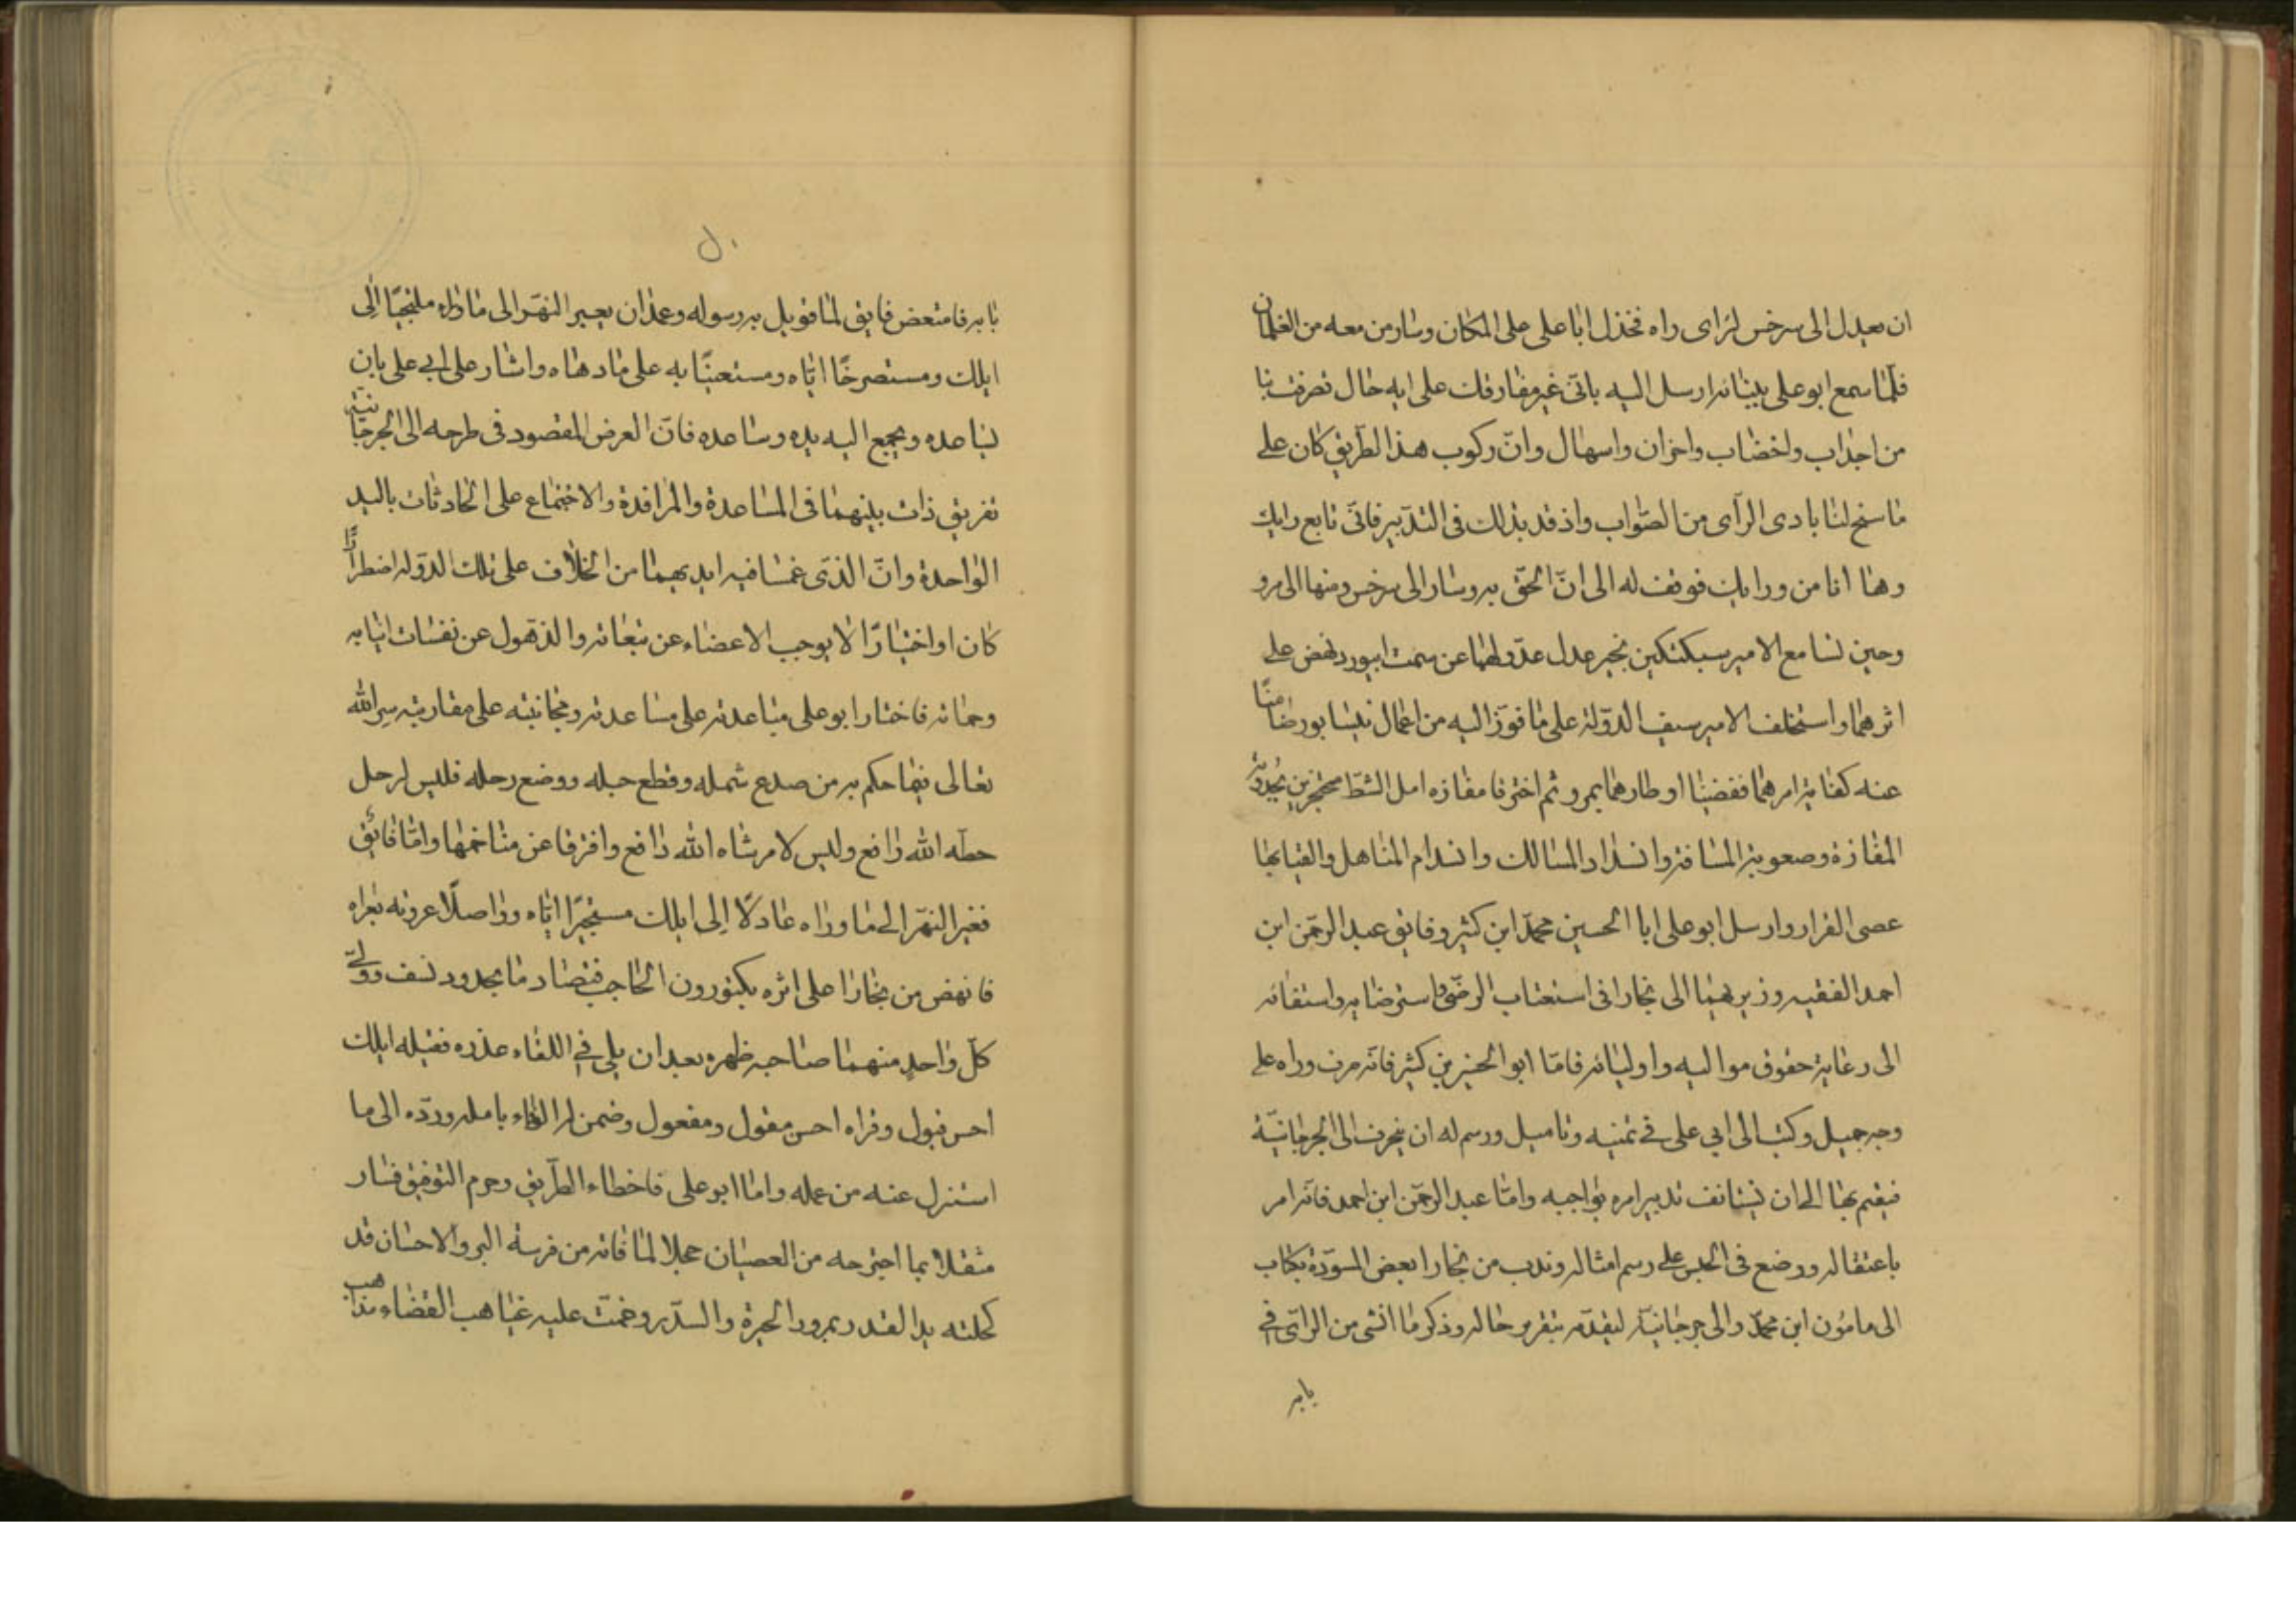 ان یعدل الی سرخس لرای راه فخذل ابا علی علی المکان وسار من معه من الغلمان
فلما سمع ابو علی بثباته ارسل الیه بانی غیر مفارقک علی ایه حال تصرفت بنا
من اجداب واخضاب واحزان واسهال وانّ رکوب هذا الطریق کان علی
ما سنح لنا بادی الرآی من الصّواب واذ قد بدلک فی التدبیر فانّی تابع رایک
وها انا من ورایک فوقف له الی انّ الحق به وسار الی سرخس ومنها الی مرو
وحین تسامع الامیر سبکتکین بخبر عدل عدولهما عن سمت ابیورد نهض علی
اثرهما واستخلف الامیر سیف الدّولة علی ما فوّز الیه من اعمال نیسابور ضامنًا
عنه کفایة امرهما فقضیا اوطارهما بمرو ثم اخترقا مفازه امل الشطّ
المفازة وصعوبة المسافة وانسداد المسالک وانسدام المناهل والقیا بها
عصی القرار وارسل ابو علی ابا الحسین محمّد ابن کثیر وفایق عبد الرحمن ابن
احمد الفقیه وزیریهما الی بخارا فی استعتاب الرضی واسترضایه واستفائه
الی رعایة حقوق موالیه واولیائه فامّا ابو الحسین بن کثیر فانّه صرف وراه علی
وجه جمیل وکتب الی ابی علی فی تمنیه وتامیل ورسم له ان ینحرف الی الجرجانیّة
فیقیم بها الی ان یستانف تدبیر امره بواجبه وامّا عبد الرحمن ابن احمد فانّه امر
باعتقاله ووضع فی الحبس علی رسم امثاله وندب من بخارا بعض المسوّدة بکتاب
الی مامون ابن محمّد والی جرجانیّة لیقدّمه بتقریر حاله وذکر ما انشی من الرایّ فی
بابه
بابه فامتعض فایق لما قوبل به رسوله وعمد ان یعبر النهر الی ما وراء ملتجیًا الی
ایلک ومستصرخًا ایّاه ومستعینًا به علی ما دهاه واشار علی ابی علی بان
یساعده ویجمع الیه یده وساعده فانّ العرض المقصود فی طرحه الی الجرجانیّة
تفریق ذات بینهما فی المساعدة والمرافدة والاجتماع علی الحادثات بالید
الواحدة وانّ الذّی غمسا فیه ایدیهما من الخلاف علی تلک الدّوله اضطرارًا
کان او اختیارًا لا یوجب الاعضاء عن تبعاته والذهول عن نفثات انیابه
وحماته فاختار ابو علی مباعدته علی مساعدته ومجانبته علی مقاربته سر الله
تعالی فیما حکم به من صدع شمله وقطع حبله ووضع رحله فلیس لرحل
حطّه الله رافع ولیس لامر شاه الله دافع وافترقا عن مناخهما وامّا فائق
فغبر النهر الی ما وراه عادلًا الی ایلک مستجیرًا ایّاه وواصلًا عروته بعراه
فانهض من بخارا علی اثره بکتوزون الحاجب فتصادما بحدود نسف وولّی
کلّ واحدٍ منهما صاحبه ظهره بعد ان بلی فی اللقاء عذره فقبله ایلک
احسن قبول وقراه احسن مقول ومفعول وضمن له الوفاء بامله وردّه الی ما
استنزل عنه من عمله واما ابو علی فاخطاء الطّریق وحرم التوفیق فسار
مثقلا بما اجترحه من العصیان عجلا لما فاته من فرسة البر والاحسان قد
کحلته ید القدر بمرود الحیرة والسّدر وخمت علیه غیاهب القضاء مذاهب